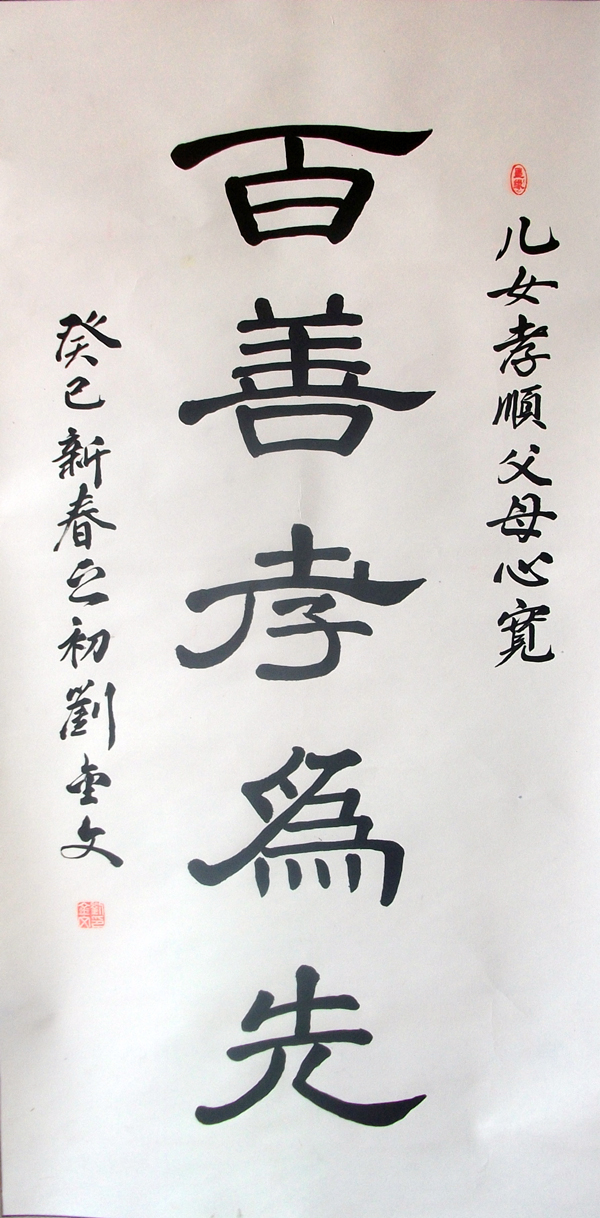 儿女孝順父母心寬
百善孝為先
癸巳新春之初劉金文